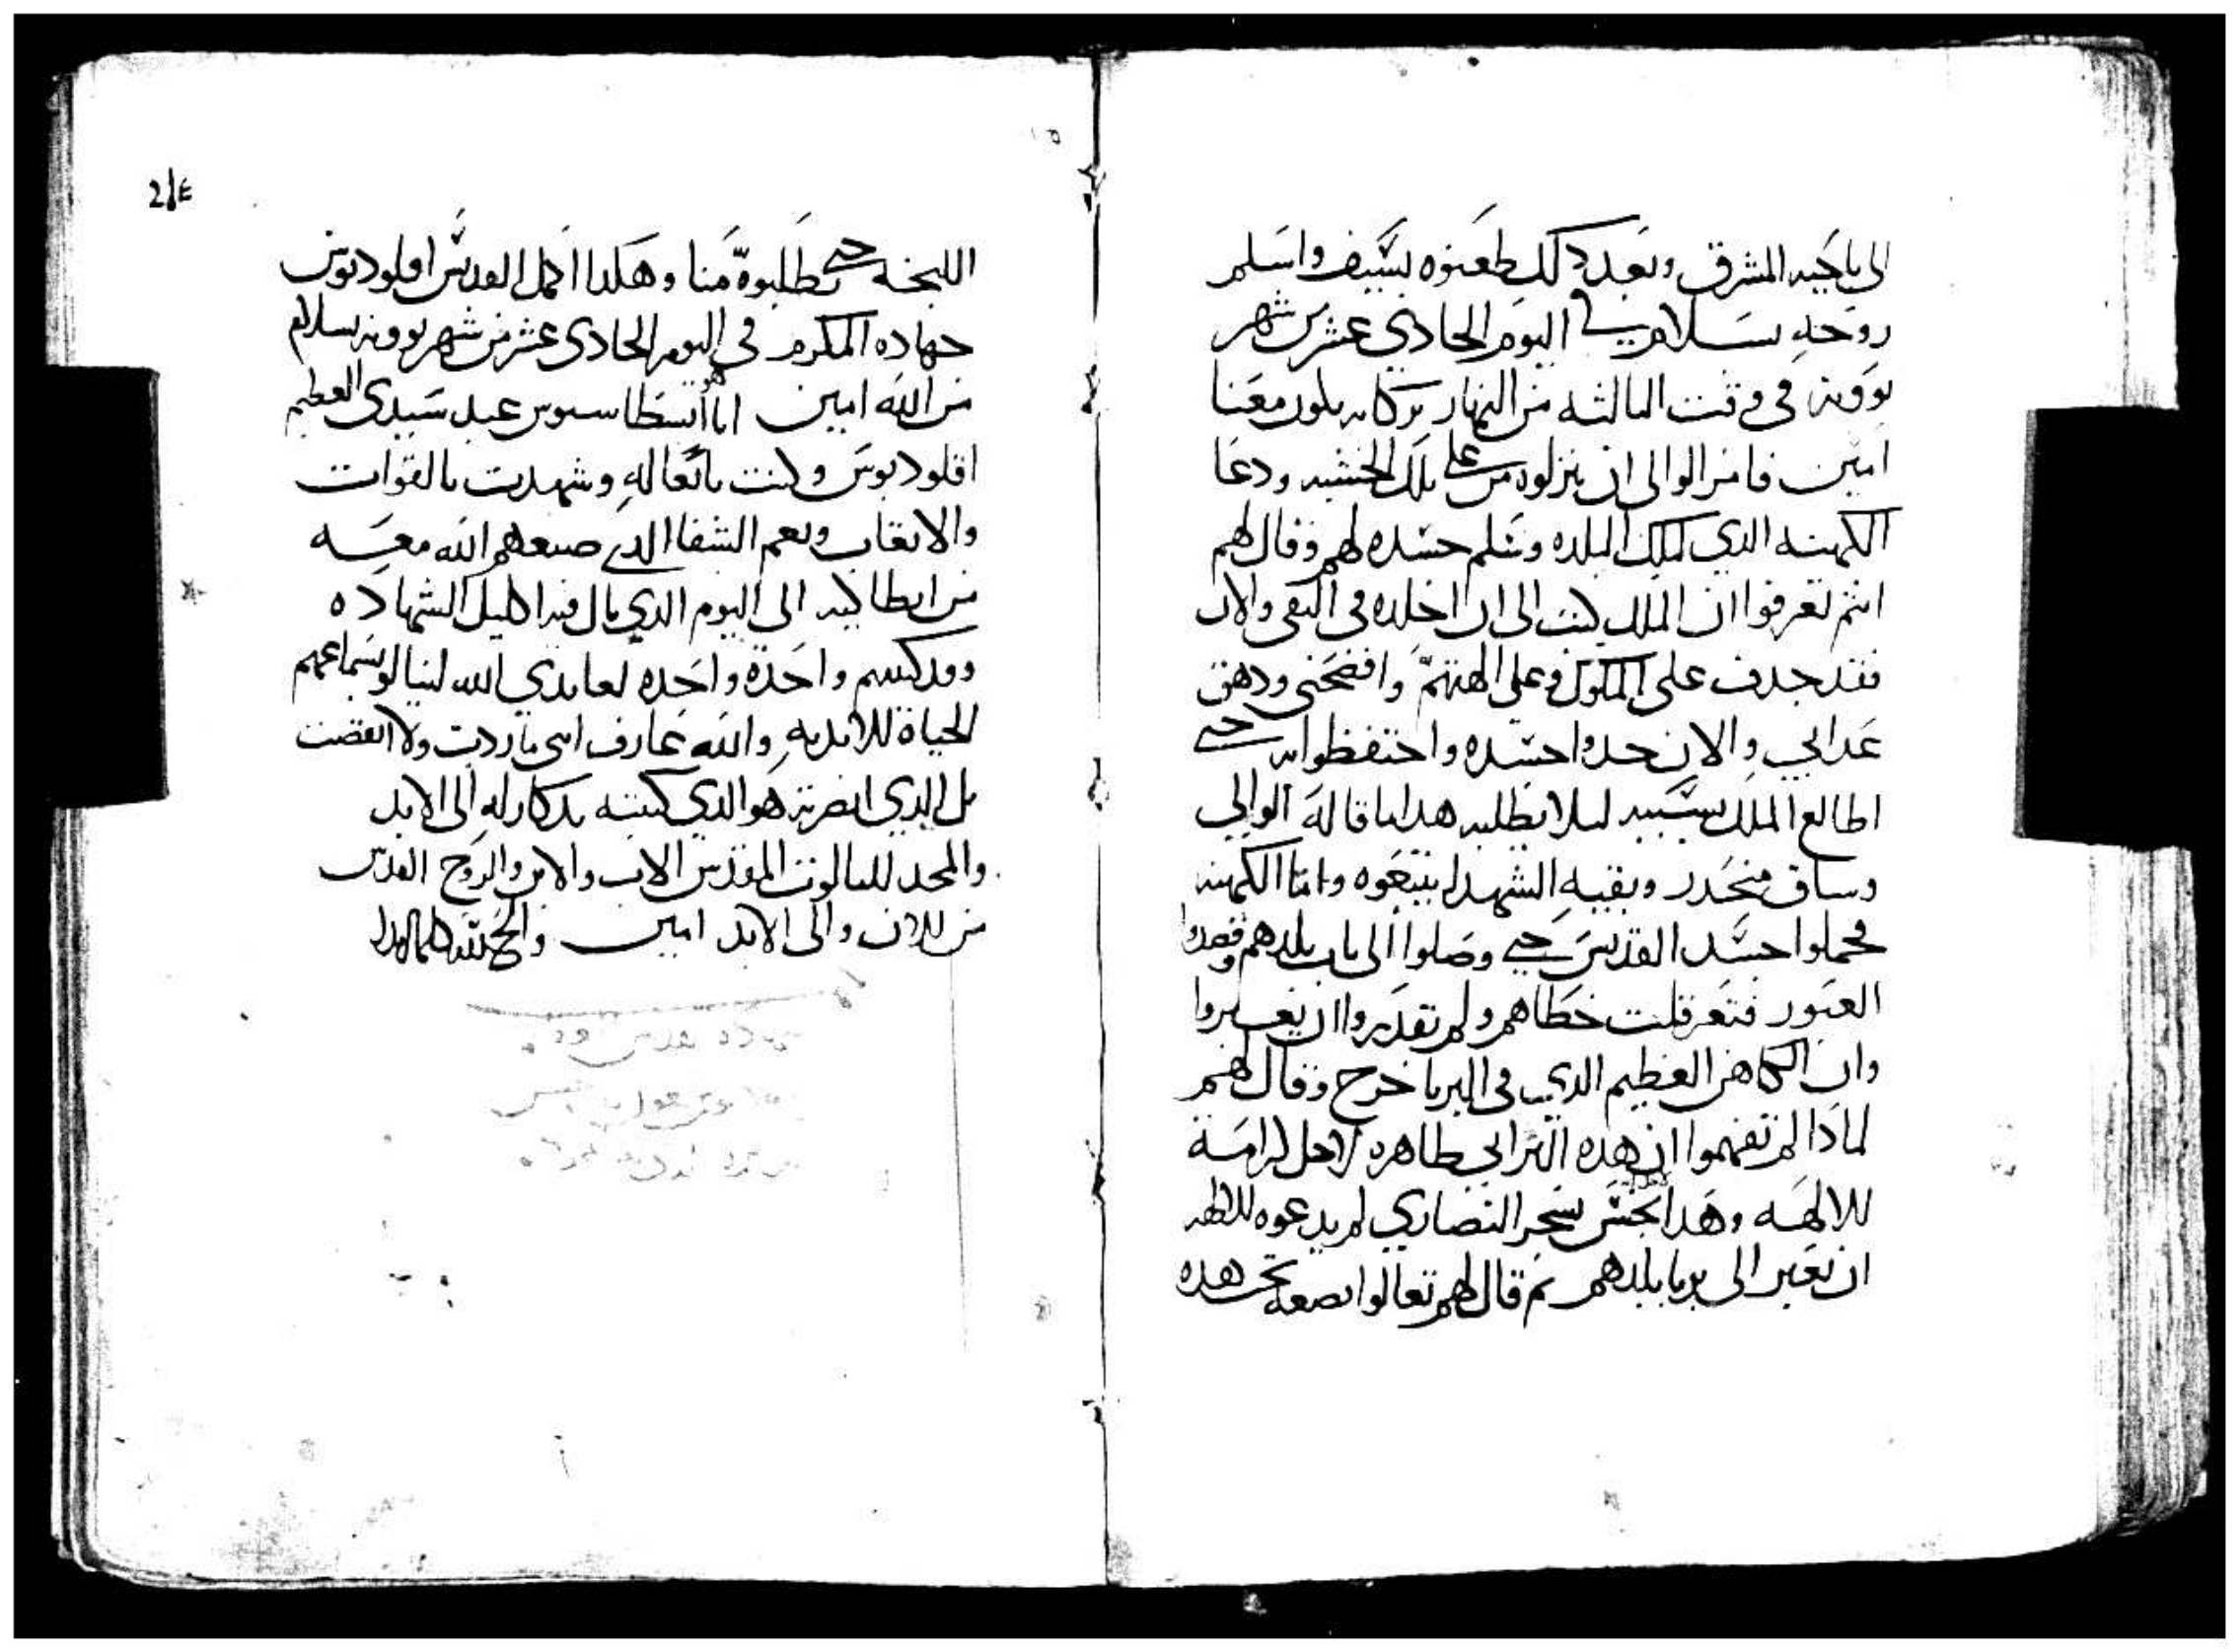 الى ناحيه المشرق وبعد دلك طعنوه بسيف واسلم
روحه بسلام في اليوم الحادي عشر من شهر
بوونه في وقت التالته من النهار بركاته تكون معنا
امين فامر الوالي ان ينزلوه من على تلك الخشبه ودعا
الكهنه الدي لتلك البلده وسلم جسده لهم وقال لهم
انتم تعرفوا ان الملك كتب الى ان اخلده في النفي والان
فقد جدف على الملوك وعلى الهتهم وافضحني ودهق
عدابي والان خدوا جسده واحتفظوا به حتى
اطالع الملك بسببه ليلا يطلبه هدا ما قاله الوالي
وساق منحدر وبقيه الشهدا يتبعوه واما الكهنه
فحملوا جسد القديس حتى وصلوا الى باب بلدهم وقصدوا
العبور فتعرقلت خطاهم ولم تقدروا ان يعبروا
وان الكاهن العظيم الدي في البربا خرج وقال لهم
لمادا لم تفهموا ان هده الترابي طاهره لاجل كرامة
للالهه وهدا نجس بسحر النصاري لم يدعوه للالهه
ان تعبر الى بربا بلدهم تم قال لهم تعالوا نضعه تحت هده
214
اللبخه حتى تطلبوه منا وهكدا اكمل القديس اقلوديوس
جهاده المكرم في اليوم الحادي عشر من شهر بوونه بسلام
من الله امين انا انسطاسيوس عبد سيدي العظيم
اقلوديوس وكنت تابعا له وشهدت بالقوات
والاتعاب ونعم الشفا الدي صنعهم الله معه
من انطاكيه الى اليوم الدي نال فيه اكليل الشهاده
وقد كتبتهم واحدة واحده لعابدي الله لينالوا بسماعهم
الحياة الابديه والله عارف انني ما زدت ولا انقصت
بل الدي انضرته هو الدي كتبته تدكار له الى الابد
والمجد للتالوت المقدس الاب والابن والروح القدس
من الان والى الابد امين والحمد لله دايما ابدا